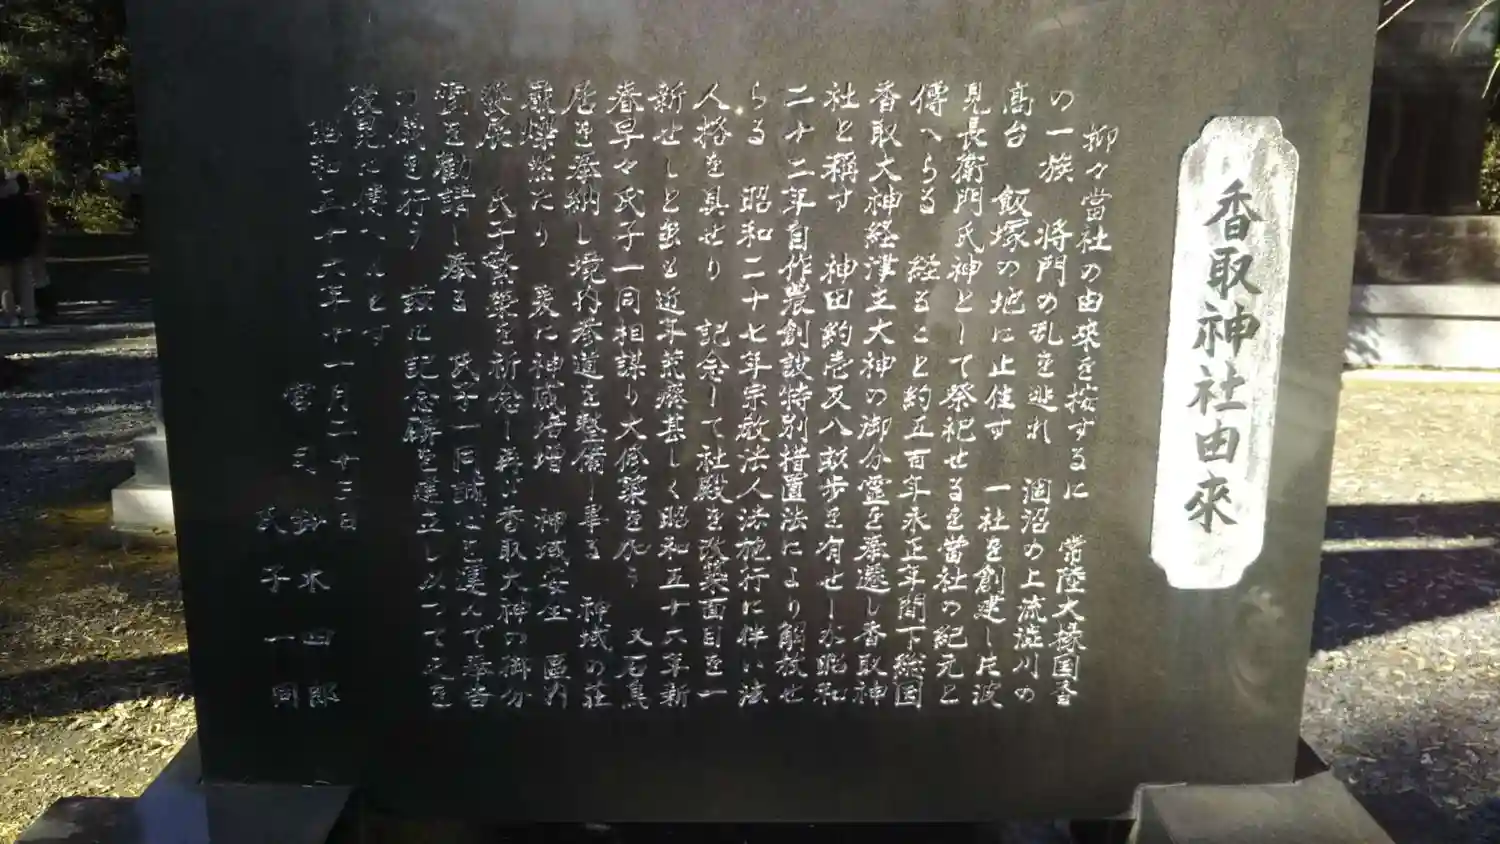 香取神社由來
抑々當社の由來を按ずるに 常陸大掾国香
の一族 将門の乱を逃れ 涸沼の上流涖川の
高台 飯塚の地に止住す 一社を創建した波
見長衛門氏神として祭祀せるを當社の紀元と
傳へらる 経ること約五百年永正年間下総国
香取大神経津主大神の御分霊を奉遷し香取神
社と稱す 神田約壱反八畝歩を有せしが昭和
二十二年自作農創設特別措置法により解放せ
らる 昭和二十七年宗教法人法施行に伴い法
人格を具せり 記念して社殿を改築面目を一
新せしと虽も近年荒廃甚しく昭和五十六年新
春早々氏子一同相謀り大修築を加う 又石鳥
居を奉納し境内参道を整備し畢る 神域の荘
厳燦然たり 爰に神威倍増 神域安全 區内
發展 氏子繁榮を祈念し再び香取大神の御分
霊を勧請し奉る 氏子一同誠心を運んで奉告
の儀を行う 茲に記念碑を建立しよって之を
後見に傳へんとす
昭和五十六年十一月二十三日
宮司 鈴木四郎
氏子一同